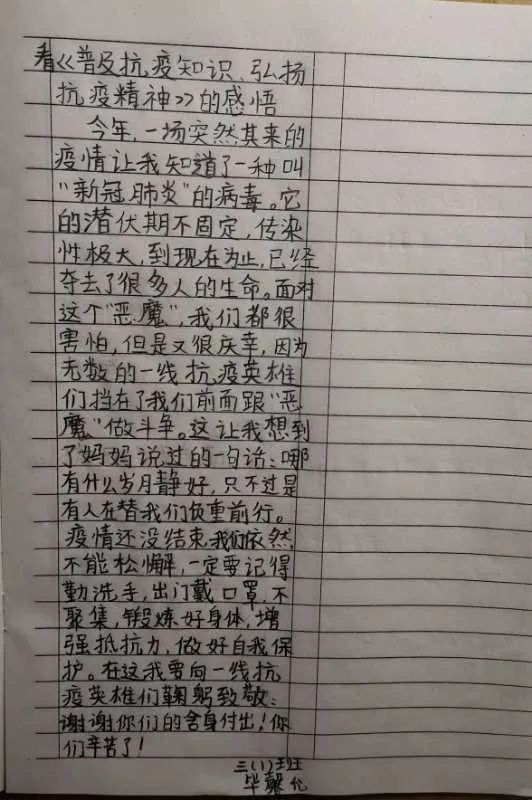 看《普及抗疫知识、弘扬
抗疫精神》的感悟
今年,一场突然其来的
疫情让我知道了一种叫
“新冠肺炎”的病毒。它
的潜伏期不固定,传染
性极大,到现在为止,已经
夺去了很多人的生命。面对
这个“恶魔”,我们都很
害怕,但是又很庆幸,因为
无数的一线抗疫英雄
们挡在了我们前面跟“恶
魔”做斗争。这让我想到
了妈妈说过的一句话:哪
有什么岁月静好,只不过是
有人在替我们负重前行。
疫情还没结束我们依然
不能松懈,一定要记得
勤洗手,出门戴口罩,不
聚集,锻炼好身体,增
强抵抗力,做好自我保
护。在这我要向一线抗
疫英雄们鞠躬致敬:
谢谢你们的舍身付出!你
们辛苦了!
三(1)班
毕馨允